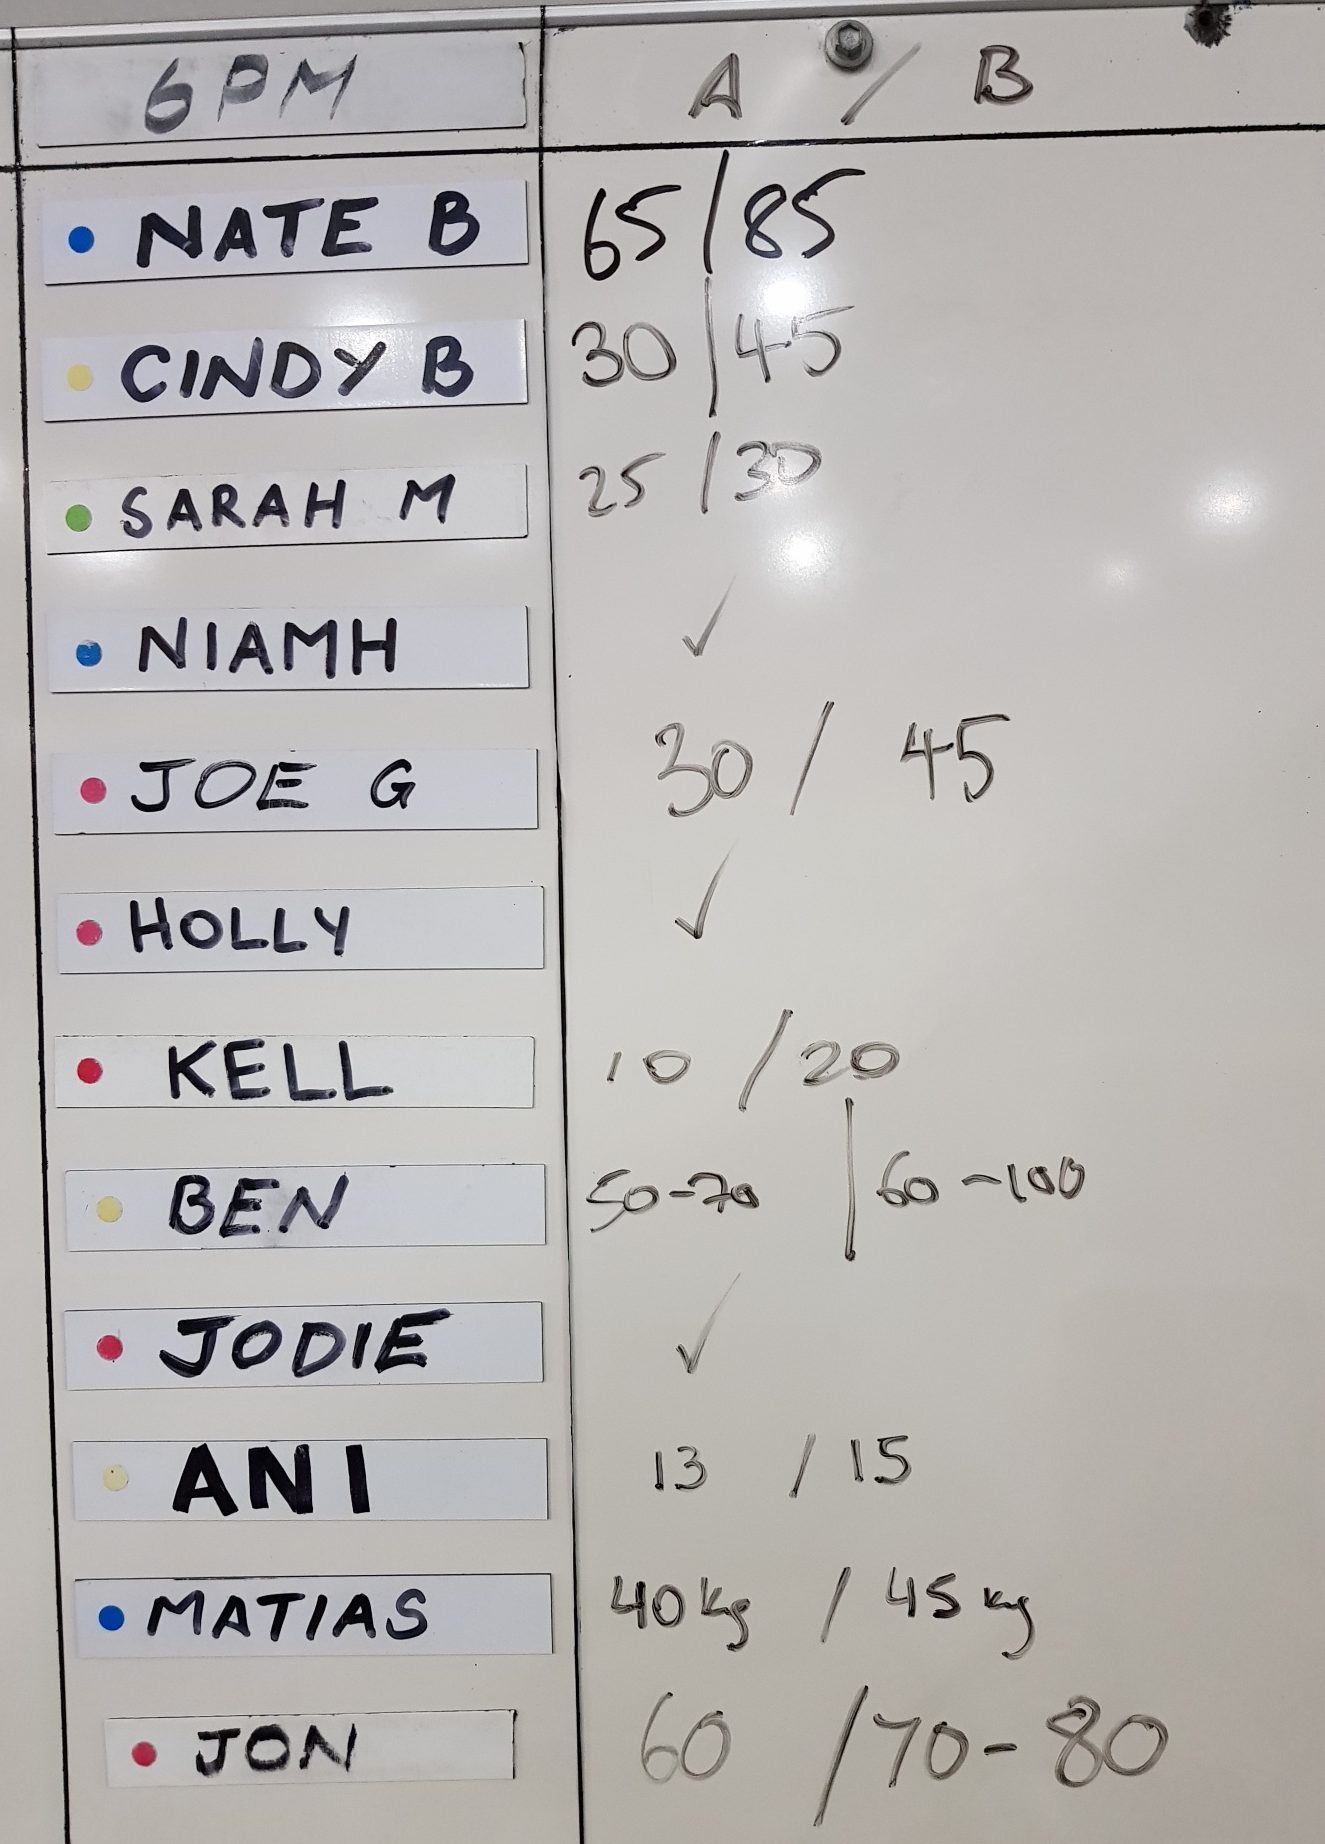 6PM A / B
NATE B 65/85
CINDY B 30/45
SARAH M 25/30
NIAMH ✓
JOE G 30 / 45
HOLLY ✓
KELL 10 / 20
BEN 50-70 | 60-100
JODIE ✓
ANI 13 / 15
MATIAS 40kg / 45kg
JON 60 / 70-80